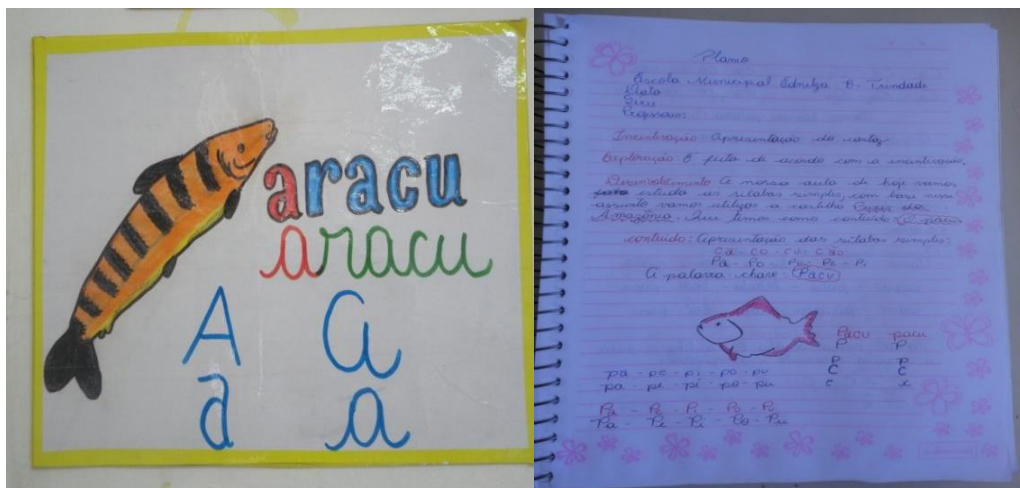 aracu
aracu
A a
a a
Plano
Escola Municipal Ednelza O. Trindade
Data
Série
Professor:
Incentivação: Apresentação do cartaz
Exploração: É feita de acordo com a incentivação.
Desenvolvimento A nossa aula de hoje vamos
estuda as sílabas simples, com base nesse
assunto vamos utiliza a cartilha Peixes da
Amazônia. Que temos como conteúdo: O pacu
conteúdo: Apresentação das sílabas simples:
Ca - co - cu - cão
Pa - Po - Pu - Pe - Pi
A palavra chave: Pacu
Pacu pacu
P P
P p
C C
c c
pa - pe - pi - po - pu
pa - pe - pi - po - pu
Pa - Pe - Pi - Po - Pu
Pa - Pe - Pi - Po - Pu